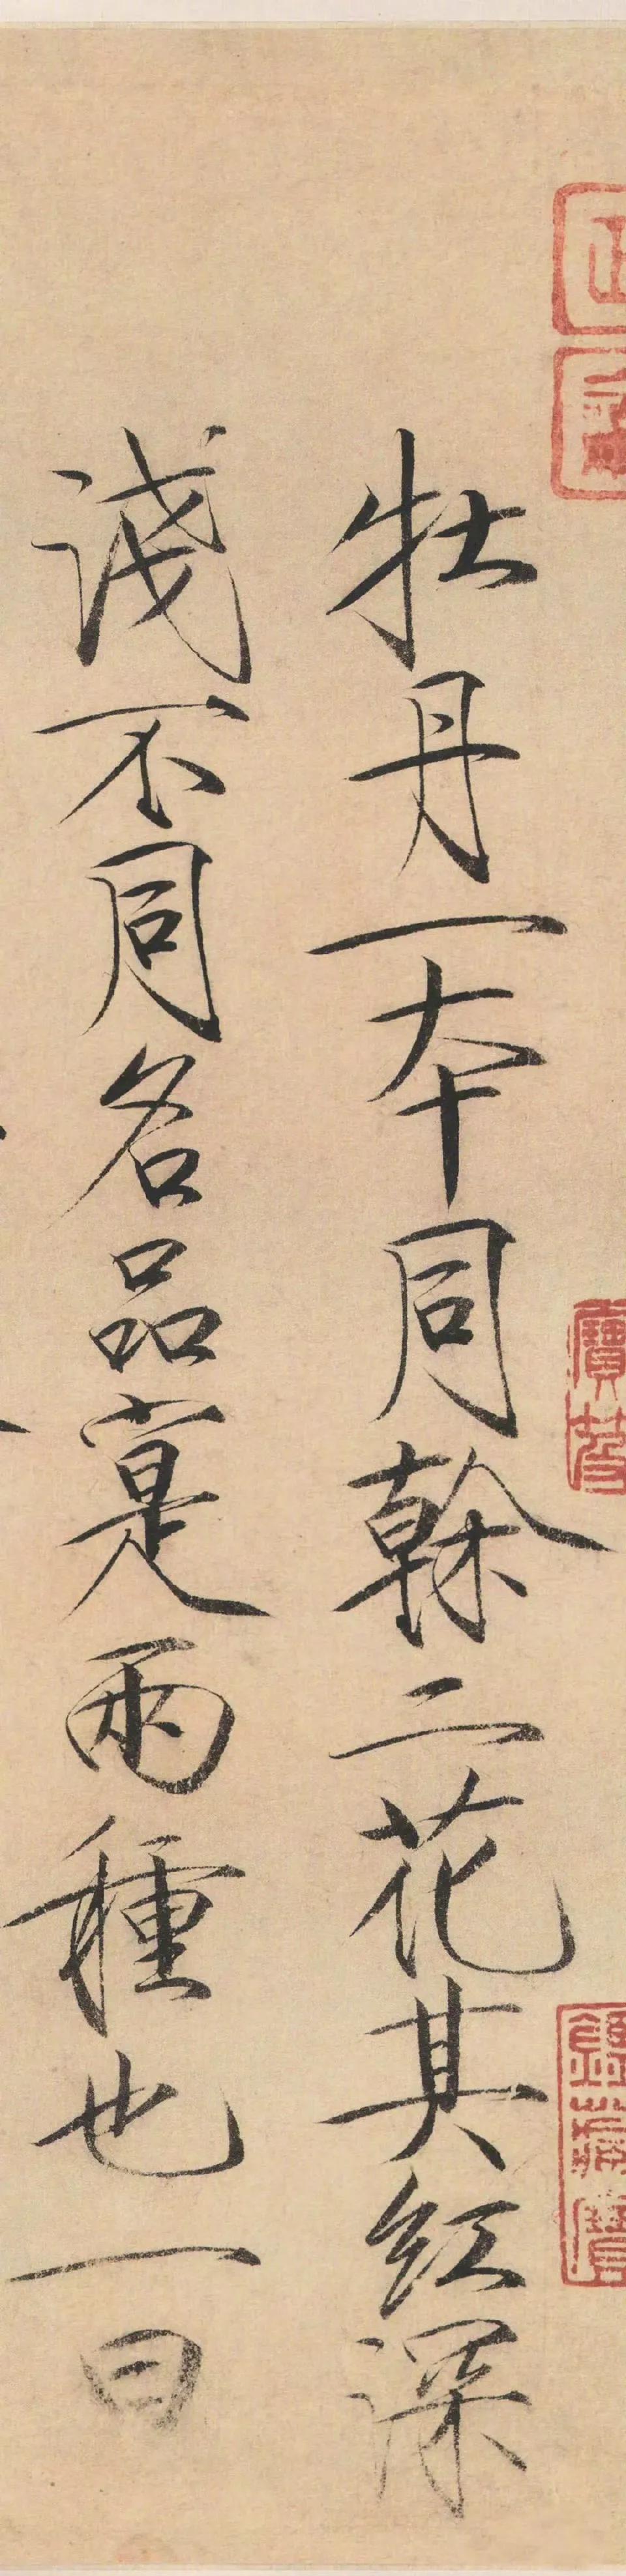 牡丹一本同榦二花其紅深
淺不同名品寔兩種也一曰